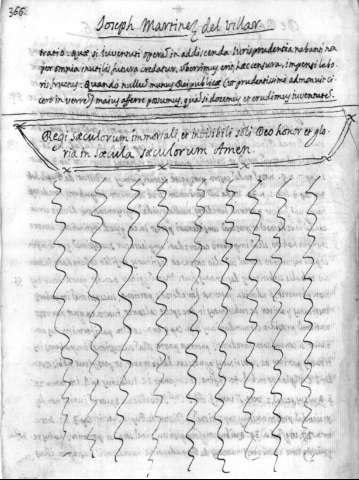 366.
Joseph Martinez del Villar.
tratio. quæ si iuventuti operæ in addiscenda Iurisprudentia nabanti na
per omnia inutilis futura credatur, uberrimus erit, hæc censura, impensi labo
ris fructus: Quando nullus munus Reipublicæ (ut prudentissime admonuit ci
cero in verre) maius afferre possumus, quam si docemus et erudimus iuventutem.
Regi sæculorum immortali, et invisibili soli Deo honor et glo
ria in sæcula sæculorum Amen.